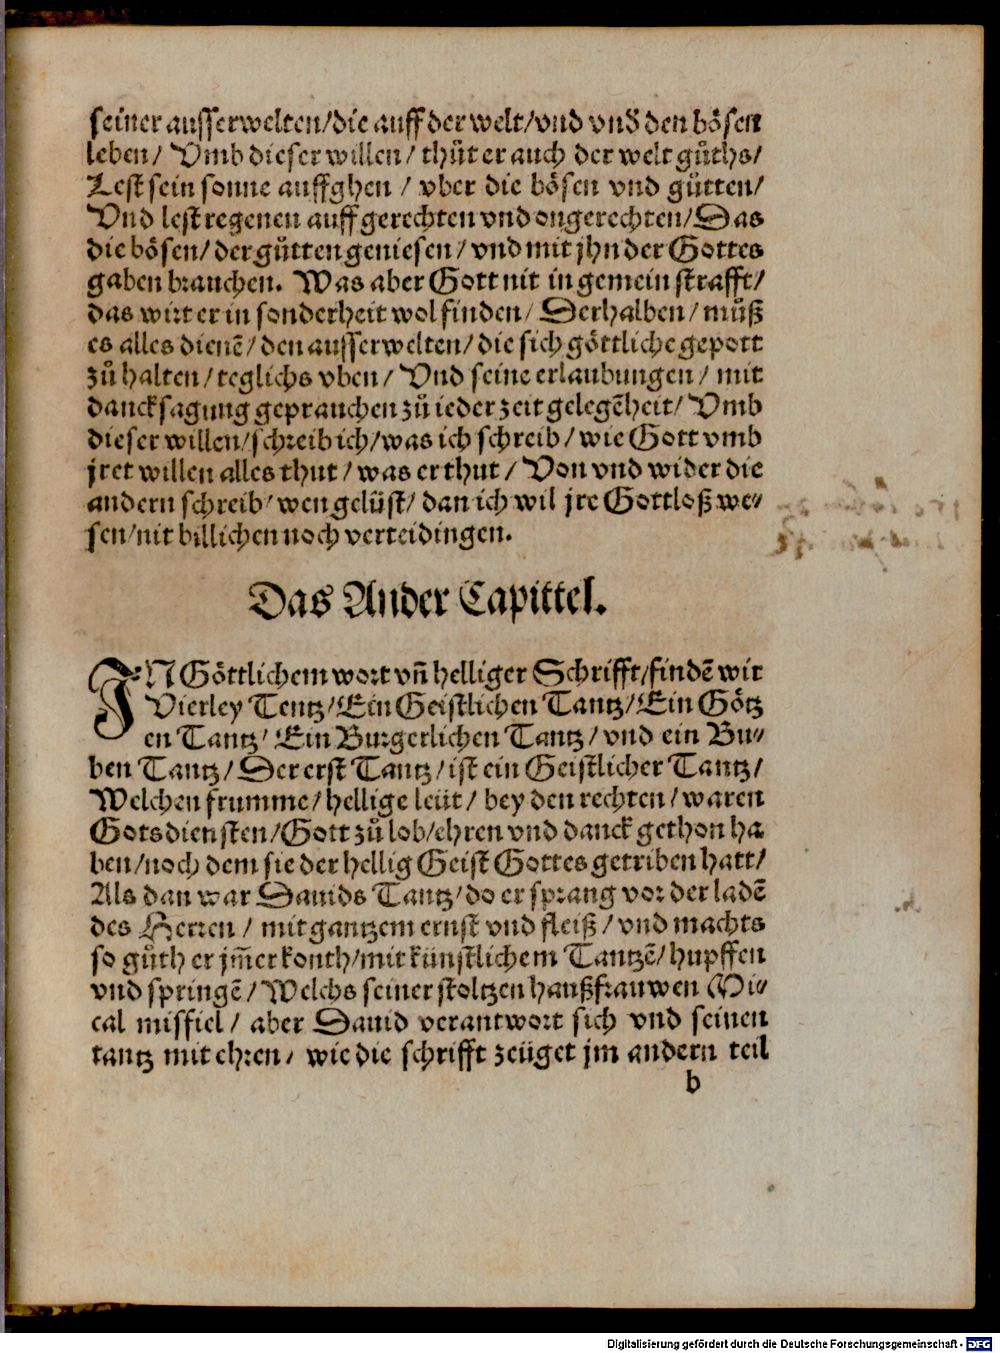 seiner ausserwelten/die auff der welt/vnd vnd̕ den bösen
leben/ Vmb dieser willen/ thůt er auch der welt gůths/
Lest sein sonne auffghen / vber die bösen vnd gůtten/
Vnd lest regenen auff gerechten vnd ongerechten/Das
die bösen/ der gůtten geniesen/ vnd mit jhn der Gottes
gaben brauchen. Was aber Gott nit in gemein strafft/
das wirt er in sonderheit wol finden/ Derhalben/ můß
es alles dienē/ den ausserwelten/ die sich göttliche gepott
zů halten/ teglichs vben/ Vnd seine erlaubungen/ mit
dancksagung geprauchen zů ieder zeit gelegēheit/ Vmb
dieser willen/schreib ich/was ich schreib/ wie Gott vmb
jret willen alles thut/ was er thut/ Von vnd wider die
andern schreib/ wen gelüst/ dan ich wil jre Gottloß we⸗
sen/nit billichen noch verteidingen.
Das Ander Capittel.
IN Göttlichem wort vñ helliger Schrifft/findē wir
Vierley Tentz/Ein Geistlichen Tantz/Ein Götz
en Tantz/ Ein Burgerlichen Tantz/ vnd ein Bu⸗
ben Tantz/ Der erst Tantz/ ist ein Geistlicher Tantz/
Welchen frumme/ hellige leüt/ bey den rechten/ waren
Gotsdiensten/Gott zů lob/ehren vnd danck gethon ha
ben/noch dem sie der hellig Geist Gottes getriben hatt/
Als dan war Dauids Tantz/ do er sprang vor der ladē
des Herren / mit gantzem ernst vnd fleiß/ vnd machts
so gůth er jm̄er konth/mit künstlichem Tantzē/ hupffen
vnd springē/ Welchs seiner stoltzen haußfrauwen Mi⸗
cal missiel/ aber Dauid verantwort sich vnd seinen
tantz mit ehren/ wie die schrifft zeüget jm andern teil
b
Digitalisierung gefördert durch die Deutsche Forschungsgemeinschaft - DFG